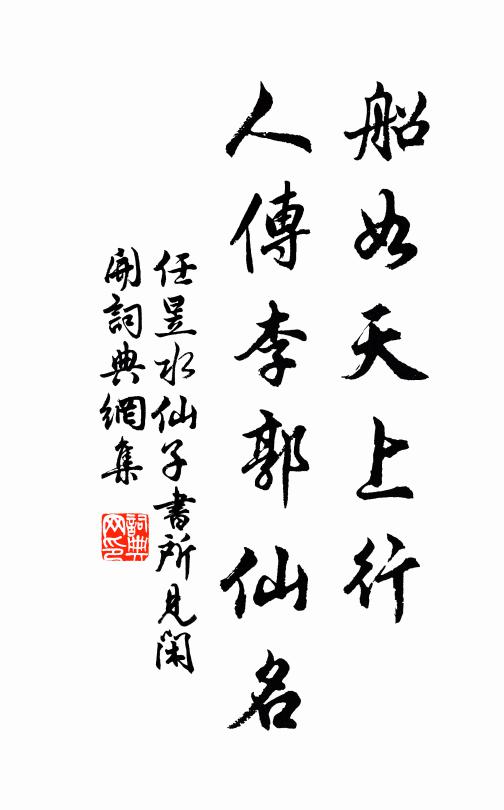 船如天上行
人傳李郭仙名
任昱水仙子書所見閑
開詞典網集
詞典网印